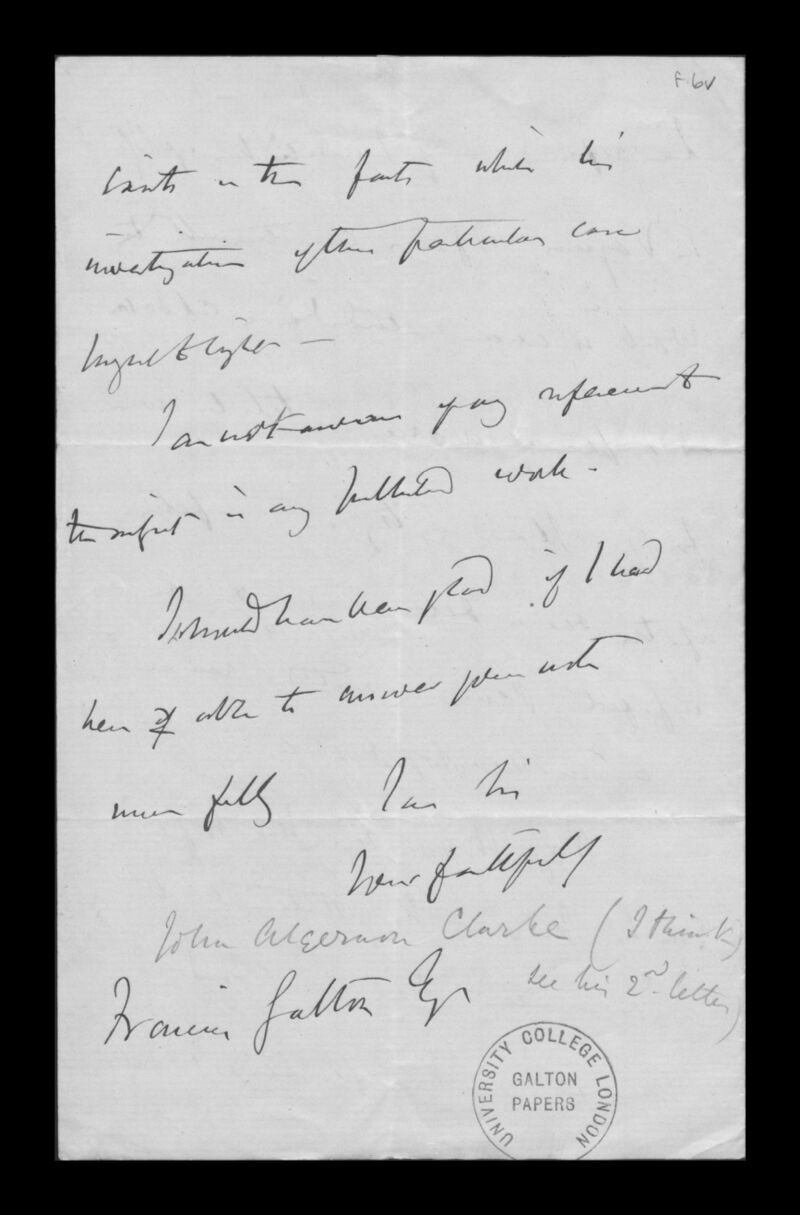 F 6v
exists in the facts which his
investigation of this particular case
might
I am not aware of any reference to
the subject in any published work -
I should have been glad if I had
been of able to answer your note
more fully I am Sir
Your faithfully
John Algernon Clarke (I think)
See his 2nd letter)
Francis Galton Esqr
UNIVERSITY COLLEGE LONDON
GALTON
PAPERS